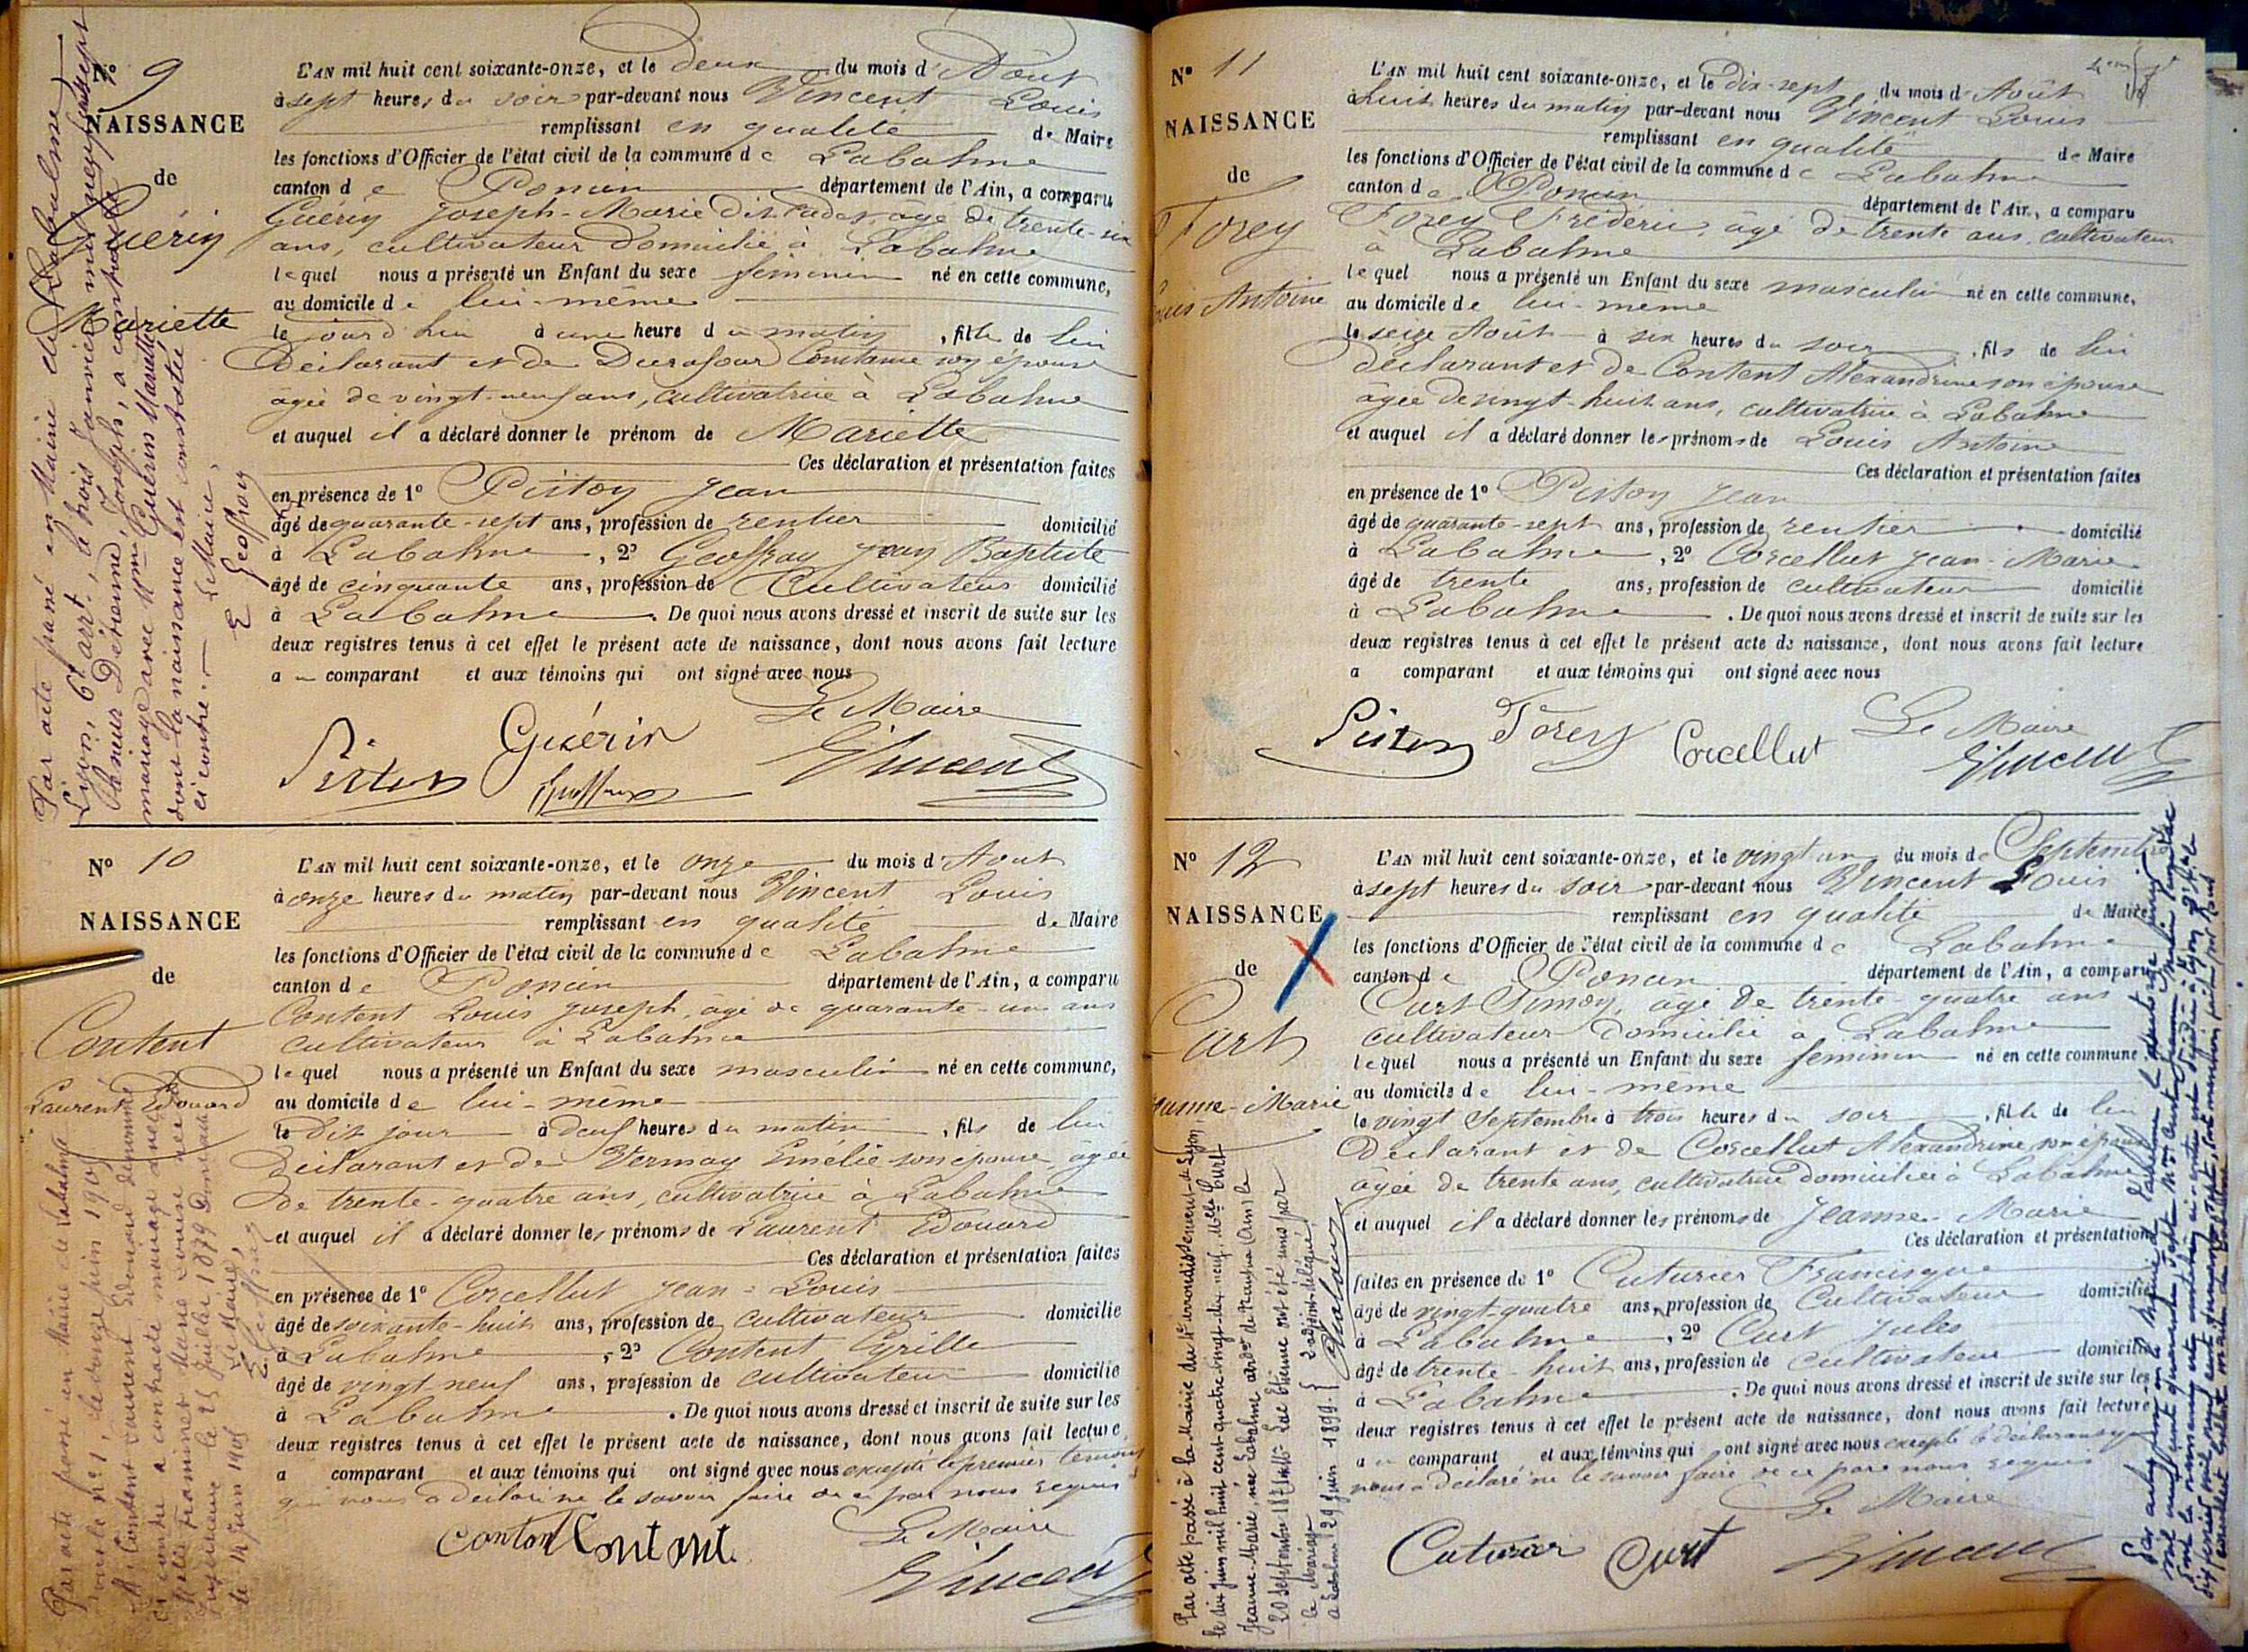 N° 9
NAISSANCE
de
Guérin
Mariette
L'AN mil huit cent soixante-onze, et le deux du mois d'Août
à sept heures du soir par-devant nous Vincent Louis
remplissant en qualité de Maire
les fonctions d'Officier de l'état civil de la commune de Labalme
canton de Poncin département de l'Ain, a comparu
Guérin Joseph-Marie dit Cadet, âgé de trente-six
ans, cultivateur domicilié à Labalme
lequel nous a présenté un Enfant du sexe féminin né en cette commune,
au domicile de lui-même
le jourd'hui à une heure du matin, fille de lui
Déclarant et de Durafour Constance son épouse
âgée de vingt-neuf ans, cultivatrice à Labalme
et auquel il a déclaré donner le prénom de Mariette
Ces déclaration et présentation faites
en présence de 1° Piston Jean
âgé de quarante-sept ans, profession de rentier domicilié
à Labalme, 2° Geoffray Jean Baptiste
âgé de cinquante ans, profession de Cultivateur domicilié
à Labalme. De quoi nous avons dressé et inscrit de suite sur les
deux registres tenus à cet effet le présent acte de naissance, dont nous avons fait lecture
au comparant et aux témoins qui ont signé avec nous
Le Maire
Piston Guérin Geoffray Vincent
Par acte passé en Mairie de Labalme
Lyon, 6e arrt, le trois Janvier mil neuf cent sept
Monsieur Détienne, Joseph, a contracté
mariage avec Mme Guérin Mariette
dont la naissance est constatée
ci contre.
Le Maire,
E Geoffray
N° 10
NAISSANCE
de
Content
Laurent Edouard
L'AN mil huit cent soixante-onze, et le onze du mois d'Aout
à onze heures du matin par-devant nous Vincent Louis
remplissant en qualité de Maire
les fonctions d'Officier de l'état civil de la commune de Labalme
canton de Poncin département de l'Ain, a comparu
Content Louis Joseph, âgé de quarante-un ans
cultivateur à Labalme
lequel nous a présenté un Enfant du sexe masculin né en cette commune,
au domicile de lui-même
le dit jour à deux heures du matin, fils de lui
Déclarant et de Vermay Emélie son épouse, âgée
de trente-quatre ans, cultivatrice à Labalme
et auquel il a déclaré donner les prénoms de Laurent Edouard
Ces déclaration et présentation faites
en présence de 1° Corcellut Jean-Louis
âgé de soixante-huit ans, profession de cultivateur domicilié
à Labalme, 2° Content Cyrille
âgé de vingt neuf ans, profession de cultivateur domicilié
à Labalme. De quoi nous avons dressé et inscrit de suite sur les
deux registres tenus à cet effet le présent acte de naissance, dont nous avons fait lecture
a comparant et aux témoins qui ont signé avec nous excepté le premier témoin
qui nous a déclaré ne le savoir faire de ce par nous requis
Le Maire
Content Content Vincent
Par acte passé en Mairie de Labalme
sous le n° 1, le douze juin 190
M. Content Laurent Edouard dénommé
ci contre a contracté mariage avec
Melle Marie Louise née à
le 25 juillet 1879
Le Maire,
le 14 Juin 190
E Geoffray
N° 11
NAISSANCE
de
Forey
Louis Antoine
L'AN mil huit cent soixante-onze, et le dix-sept du mois d'Août
à huit heures du matin par-devant nous Vincent Louis
remplissant en qualité de Maire
les fonctions d'Officier de l'état civil de la commune de Labalme
canton de Poncin département de l'Ain, a comparu
Forey Frédéric, âgé de trente ans, cultivateur
à Labalme
lequel nous a présenté un Enfant du sexe masculin né en cette commune,
au domicile de lui-même
le seize Août à six heures du soir, fils de lui
déclarant et de Content Alexandrine son épouse
âgée de vingt-huit ans, cultivatrice à Labalme
et auquel il a déclaré donner les prénoms de Louis Antoine
Ces déclaration et présentation faites
en présence de 1° Piston Jean
âgé de quarante-sept ans, profession de rentier domicilié
à Labalme, 2° Corcellut Jean-Marie
âgé de trente ans, profession de cultivateur domicilié
à Labalme. De quoi nous avons dressé et inscrit de suite sur les
deux registres tenus à cet effet le présent acte de naissance, dont nous avons fait lecture
a comparant et aux témoins qui ont signé avec nous
Le Maire
Piston Forey Corcellut Vincent
N° 12
NAISSANCE
de
Curt
Jeanne-Marie
L'AN mil huit cent soixante-onze, et le vingt un du mois de Septembre
à sept heures du soir par-devant nous Vincent Louis
remplissant en qualité de Maire
les fonctions d'Officier de l'état civil de la commune de Labalme
canton de Poncin département de l'Ain, a comparu
Curt Simon, âgé de trente-quatre ans
cultivateur domicilié à Labalme
lequel nous a présenté un Enfant du sexe féminin né en cette commune,
au domicile de lui-même
le vingt Septembre à trois heures du soir, fille de lui
Déclarant et de Corcellut Alexandrine son épouse
âgée de trente ans, cultivatrice domiciliée à Labalme
et auquel il a déclaré donner les prénoms de Jeanne-Marie
Ces déclaration et présentation
faites en présence de 1° Cuturier Francisque
âgé de vingt-quatre ans, profession de Cultivateur domicilié
à Labalme, 2° Curt Jules
âgé de trente-huit ans, profession de cultivateur domicilié
à Labalme. De quoi nous avons dressé et inscrit de suite sur les
deux registres tenus à cet effet le présent acte de naissance, dont nous avons fait lecture
au comparant et aux témoins qui ont signé avec nous excepté le déclarant qui
nous a déclaré ne le savoir faire de ce par nous requis
Le Maire
Cuturier Curt Vincent
Par acte passé à la Mairie du 1er arrondissement de Lyon,
le dix Juin mil huit cent quatre vingt-dix neuf, Melle Curt
Jeanne-Marie, née Labalme ardt de Nantua (Ain) le
20 Septembre 1871 et Mr Luc Etienne ont été unis par
le Mariage
a Labalme 29 Juin 1899.
L'adjoint délégué,